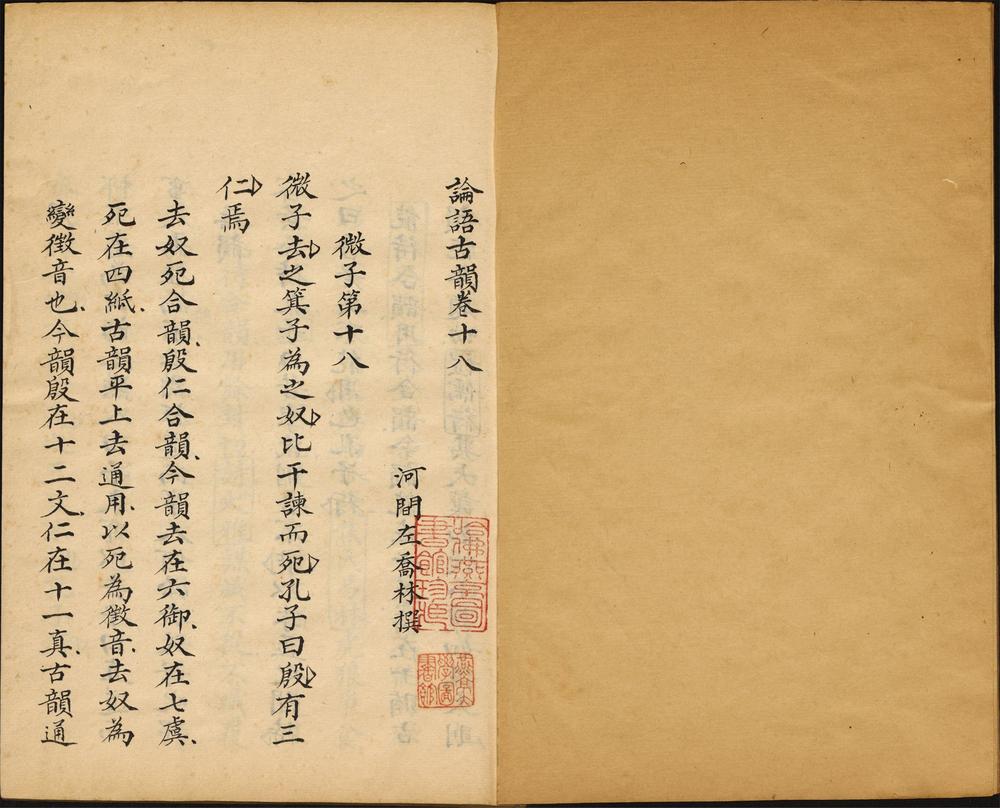 論語古韻卷十八
河間左喬林撰
微子第十八
微子去之箕子為之奴比干諫而死孔子曰殷有三
仁焉
去奴死合韻殷仁合韻今韻去在六御奴在七虞
死在四紙古韻平上去通用以死為徵音去奴為
變徵音也今韻殷在十二文仁在十一真古韻通
燕京大
學圖
書館